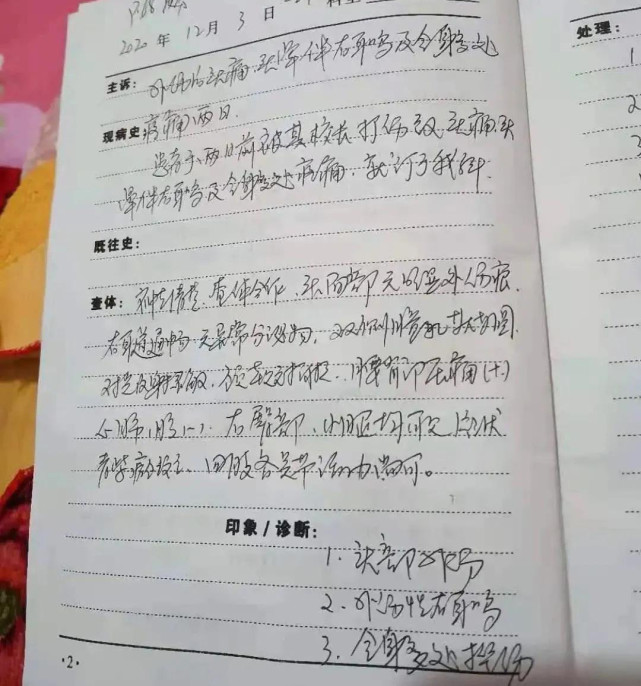 2020 年 12月 3 日
主诉: 外伤后头痛、头晕伴右耳鸣及全身多处
现病史: 疼痛两日.
患者于两日前被其校长打伤致头痛、头
晕伴右耳鸣及全身多处疼痛. 就诊于我科.
既往史:
查体: 神志清楚, 查体合作, 头面部无明显外伤痕.
右耳道通畅 无异常分泌物. 双侧瞳孔等大等圆.
对光反射灵敏. 腰背部压痛(+)
右臀部、小腿 均可见片状
青紫瘀斑. 四肢各关节活动尚可。
印象/诊断:
1. 头部外伤
2. 外伤性右耳鸣
3. 全身多处挫伤
·2·
处理:
1
2